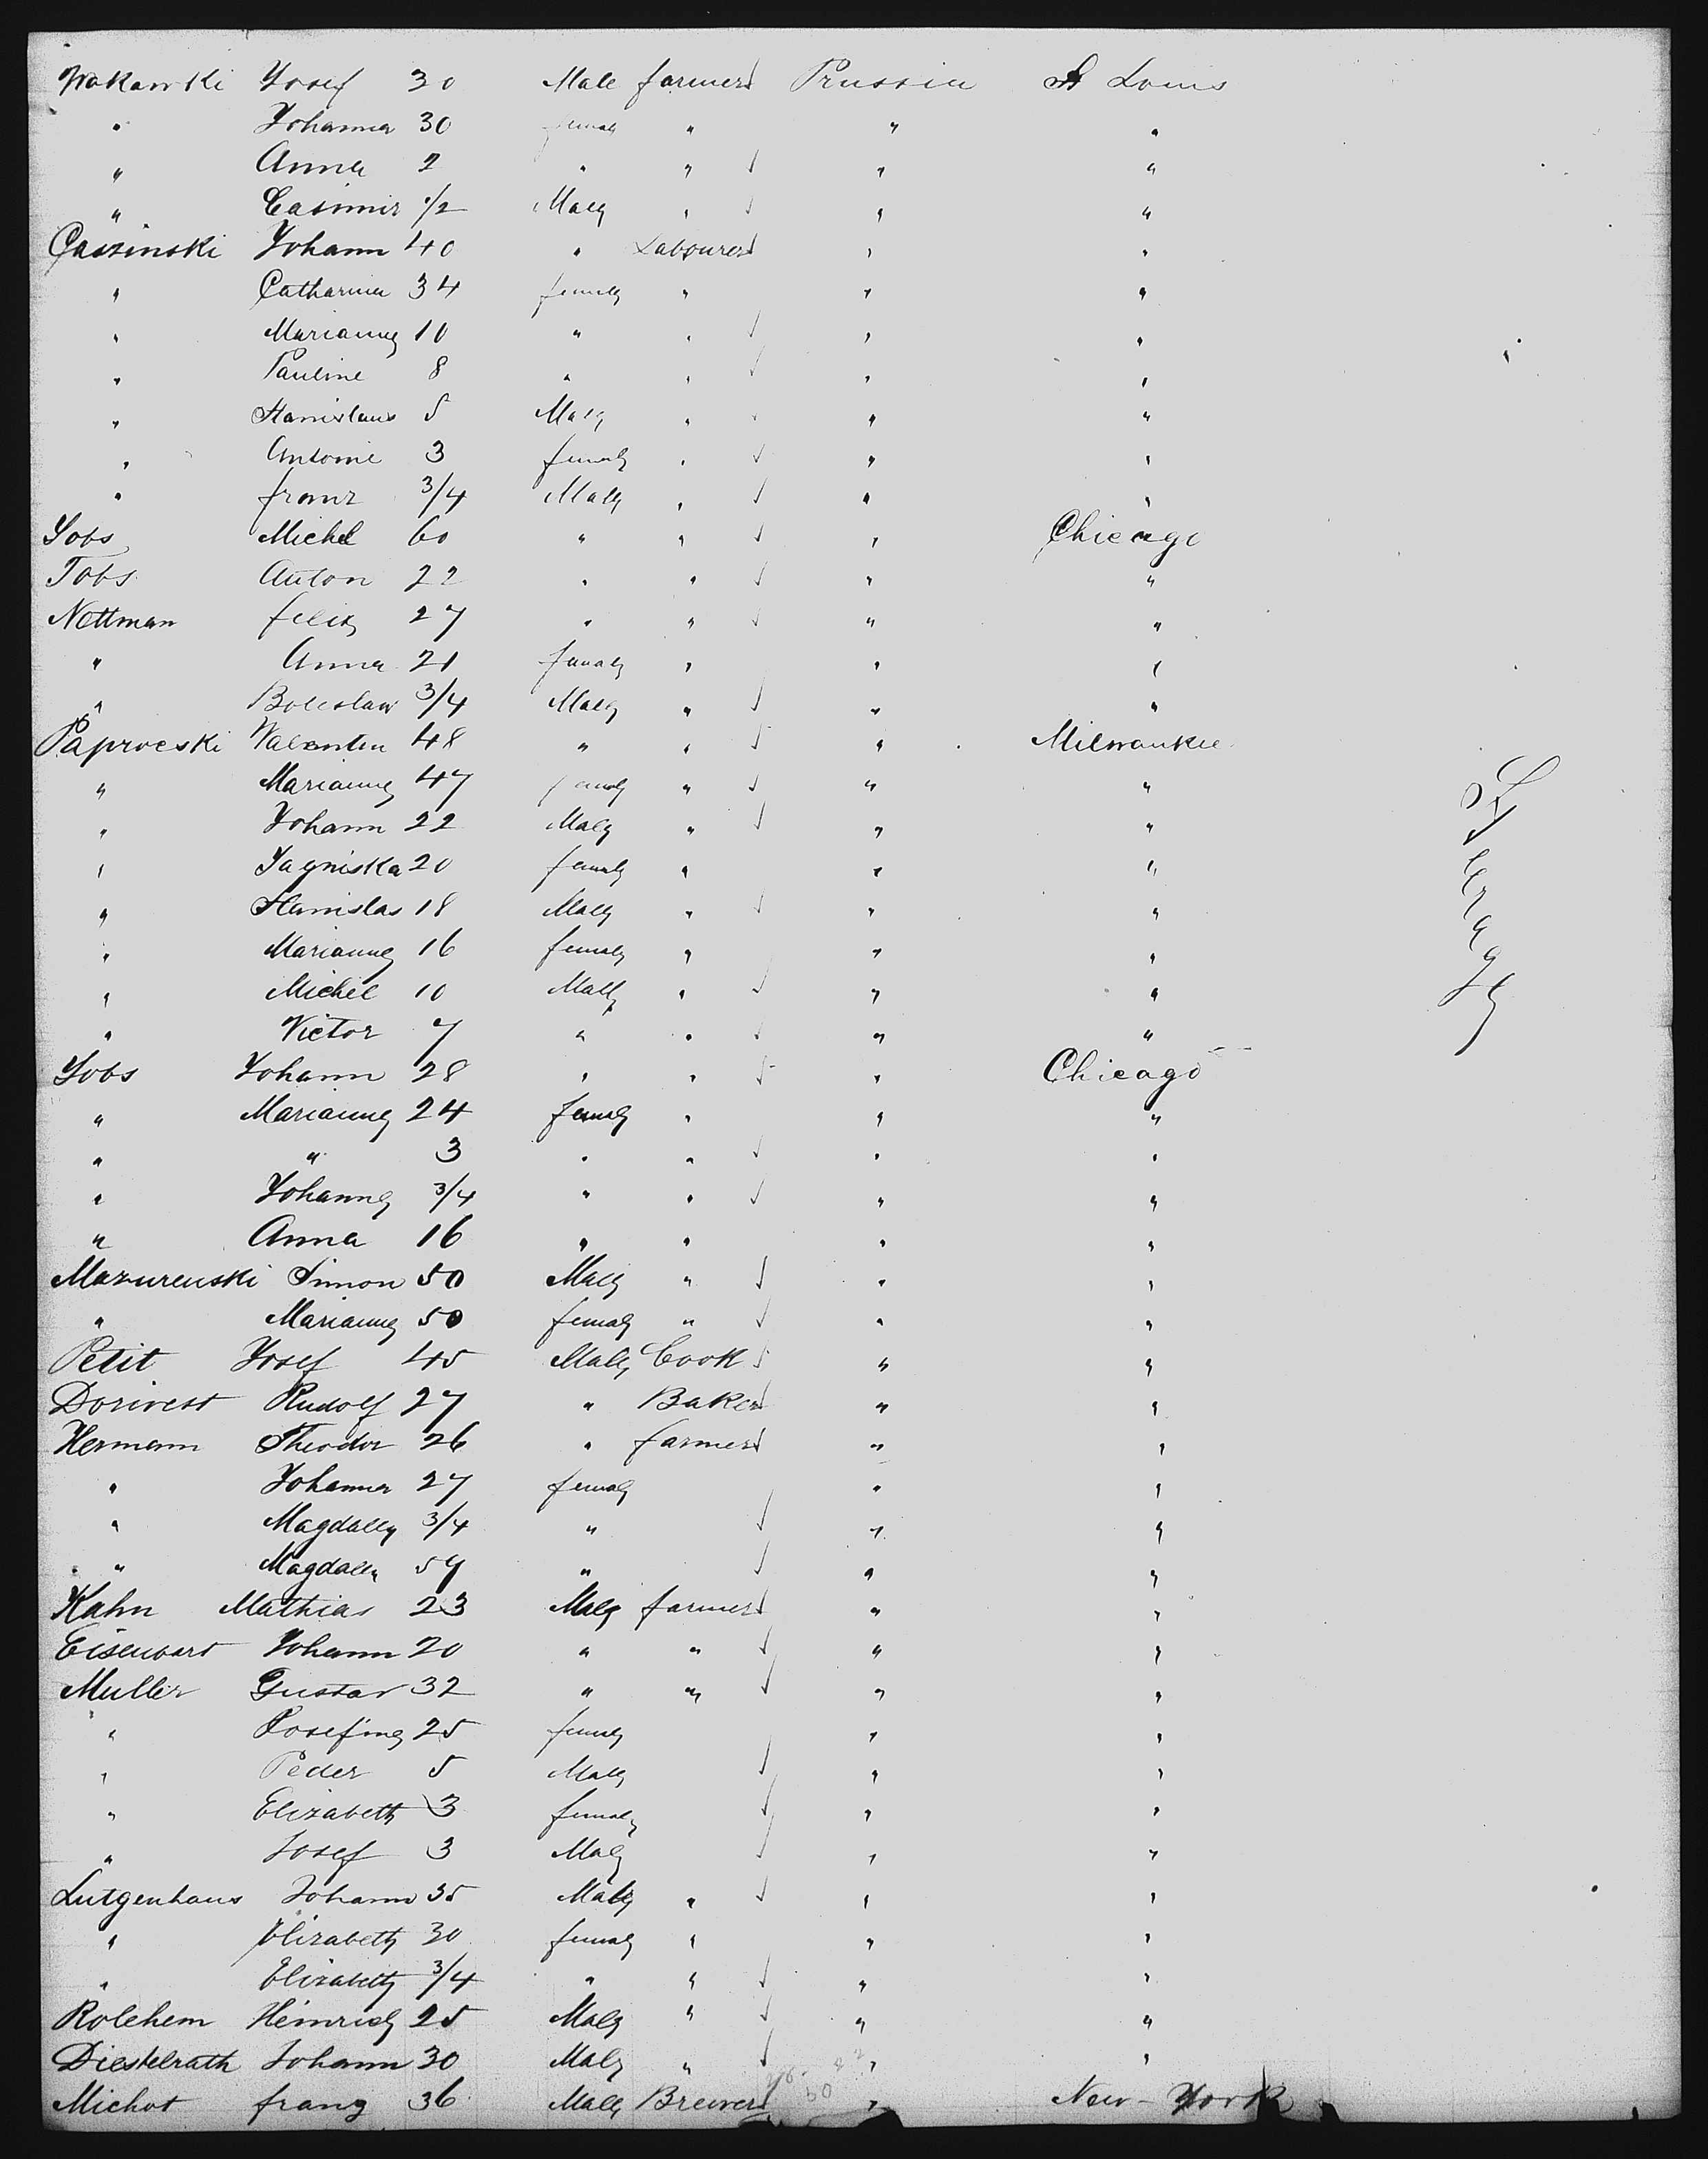 Josef 30 Male farmer Prussia St Louis
" Johanna 30 female " " "
" Anna 2 " " " "
" Casimir 1/2 Male " " "
Caszinski Johann 40 " Labourer " "
" Catharina 34 female " " "
" Marianne 10 " " " "
" Pauline 8 " " " "
" Stanislaus 5 Male " " "
" Antonie 3 female " " "
" franz 3/4 Male " " "
Jobs Michel 60 " " " Chicago
Jobs Anton 22 " " " "
Nettman felix 27 " " " "
" Anna 21 female " " "
" Boleslaw 3/4 Male " " "
Paprocski Valentin 48 " " " Milwaukee
" Marianne 47 female " " "
" Johann 22 Male " " "
" Jagniska 20 female " " "
" Stanislas 18 Male " " "
" Marianne 16 female " " "
" Michel 10 Male " " "
" Victor 7 " " " "
Jobs Johann 28 " " " Chicago
" Marianne 24 female " " "
" " 3 " " " "
" Johanne 3/4 " " " "
" Anna 16 " " " "
Mazurenski Simon 50 Male " " "
" Marianne 50 female " " "
Petit Josef 45 Male Cook " "
Dorivest Rudolf 27 " Baker " "
Hermann Theodor 26 " farmer " "
" Johanna 27 female " "
" Magdale 3/4 " " "
" Magdale 59 " " "
Kahn Mathias 23 Male farmer " "
Johann 20 " " " "
Muller Gustav 32 " " " "
" Josefine 25 female " "
" Peder 5 Male " "
" Elizabeth 3 female " "
" Josef 3 Male " "
Lutgenhaus Johann 35 Male " " "
" Elizabeth 30 female " " "
" Elizabeth 3/4 " " " "
Rolehem Heinrich 25 Male " " "
Diestelrath Johann 30 Male " " "
Michot franz 36 Male Brewer " New-York
Steerage